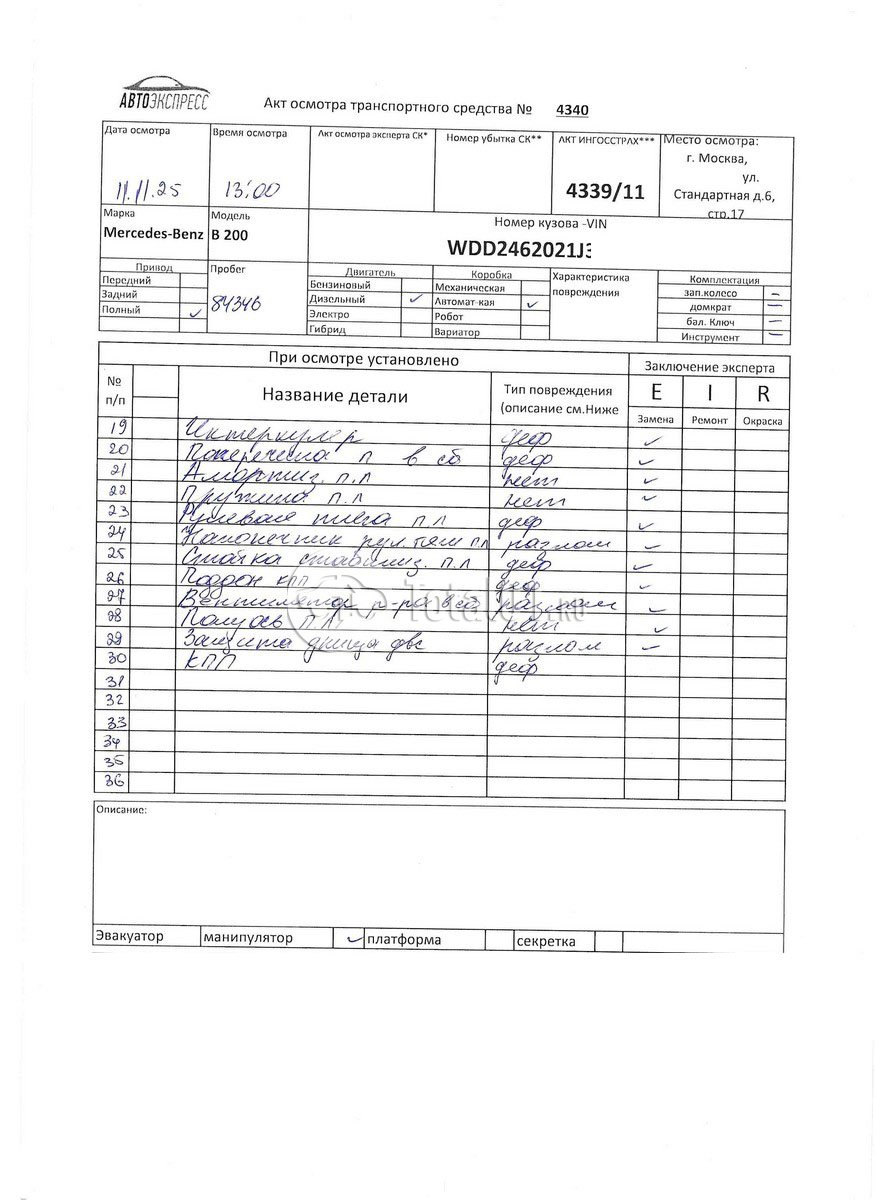 АВТОЭКСПРЕСС
Акт осмотра транспортного средства № 4340
Дата осмотра Время осмотра Акт осмотра эксперта СК* Номер убытка СК** АКТ ИНГОССТРАХ*** Место осмотра:
11.11.25 13:00 4339/11 г. Москва, ул. Стандартная д.6, стр.17
Марка Модель Номер кузова -VIN
Mercedes-Benz B 200 WDD2462021J
Привод Пробег Двигатель Коробка Характеристика повреждения Комплектация
Передний Бензиновый Механическая зап.колесо –
Задний 84346 Дизельный ✓ Автомат-кая ✓ домкрат –
Полный ✓ Электро Робот бал. Ключ –
Гибрид Вариатор Инструмент –
При осмотре установлено Заключение эксперта
№ п/п Название детали Тип повреждения (описание см.Ниже E I R
Замена Ремонт Окраска
19 Интеркулер деф ✓
20 Поперечина п в сб деф ✓
21 Амортиз. п.л нет ✓
22 Пружина п.л нет ✓
23 Рулевая тяга п.л деф ✓
24 Наконечник рул.тяги пл разлом ✓
25 Стойка стабилиз. п.л деф ✓
26 Поддон кпп деф ✓
27 Вентилятор р-ра в сб разлом ✓
28 Полуось п.л нет ✓
29 Защита днища двс разлом ✓
30 КПП деф
31
32
33
34
35
36
TotalKP.RU
Описание:
Эвакуатор манипулятор ✓ платформа секретка